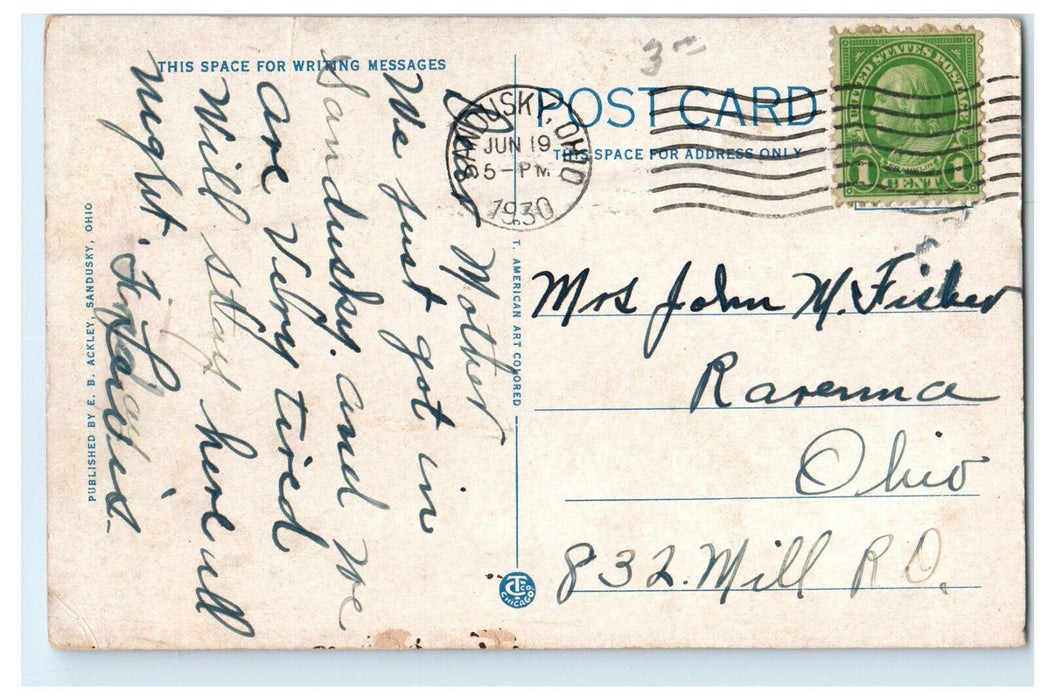 THIS SPACE FOR WRITING MESSAGES
Dear Mother
We just got in
Sandusky. and we
are Very tired
Will stay here all
night.
Louis.
PUBLISHED BY E. B. ACKLEY, SANDUSKY, OHIO
T. AMERICAN ART COLORED
CT CO
CHICAGO
3
POST CARD
THIS SPACE FOR ADDRESS ONLY
SANDUSKY, OHIO
JUN 19
5-PM
1930
UNITED STATES POSTAGE
1 CENT 1
Mrs John M. Fisher
Ravenna
Ohio
832. Mill RD.